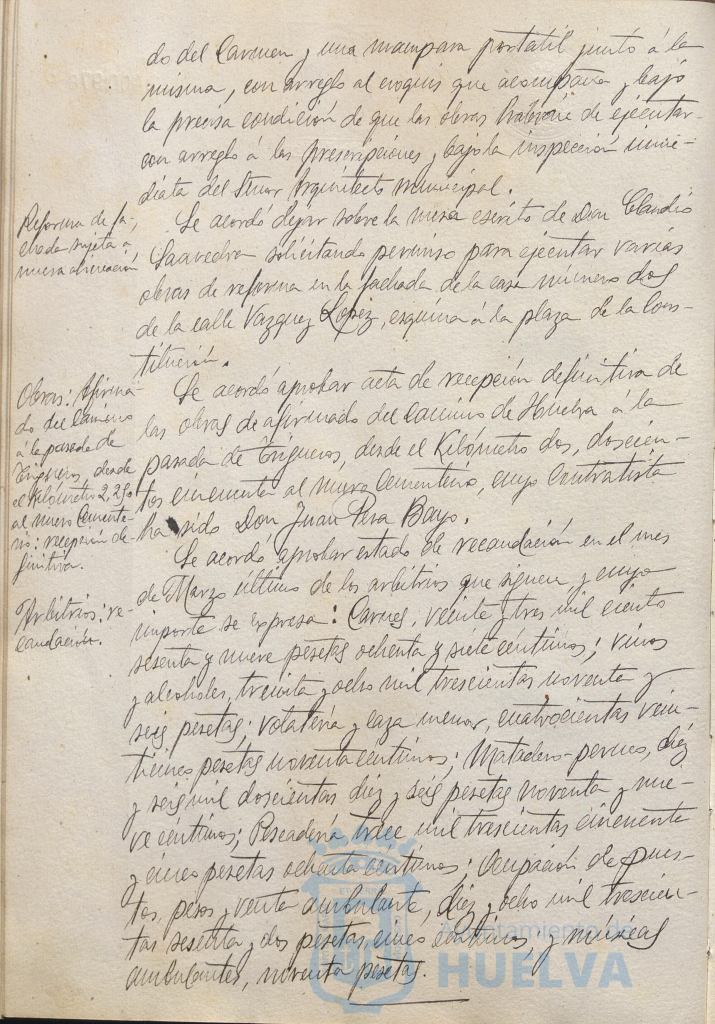 do del Carmen y una mampara portatil junto á la
misma, con arreglo al croquis que acompaña y bajo
la precisa condición de que las obras habrán de ejecutar-
con arreglo á las prescripciones y bajo la inspección inme-
diata del Señor Arquitecto municipal.
Reforma de fa-
chada sujeta a
nueva alineación
Se acordó dejar sobre la mesa escrito de Don Claudio
Saavedra solicitando permiso para ejecutar varias
obras de reforma en la fachada de la casa número dos
de la calle Vazquez Lopez, esquina á la plaza de la Cons-
titución.
Obras: Afirma-
do del Camino
á la pasada de
Trigueros, desde
el Kilometro 2,250
al nuevo Cemente-
rio: recepción de-
finitiva.
Se acordó aprobar acta de recepción definitiva de
las obras de afirmado del Camino de Huelva á la
pasada de Trigueros, desde el Kilómetro dos, doscien-
tos cincuenta al nuevo Cementerio, cuyo Contratista
ha sido Don Juan Pera Bayo.
Arbitrios: re-
caudación.
Se acordó aprobar estado de recaudación en el mes
de Marzo último de los arbitrios que siguen y cuyo
importe se expresa: Carnes, veinte y tres mil ciento
sesenta y nueve pesetas ochenta y siete céntimos; vinos
y alcoholes, treinta y ocho mil trescientas noventa y
seis pesetas; volatería y caza menor, cuatrocientas vein-
ticinco pesetas noventa céntimos; Matadero-perneo, diez
y seis mil doscientas diez y seis pesetas noventa y nue-
ve céntimos; Pescadería trece mil trescientas cincuenta
y cinco pesetas ochenta céntimos; Ocupación de pues-
tos, pesos y venta ambulante, diez y ocho mil trescien-
tas sesenta y dos pesetas, cinco céntimos y músicas
ambulantes, noventa pesetas.
Ayuntamiento de
HUELVA